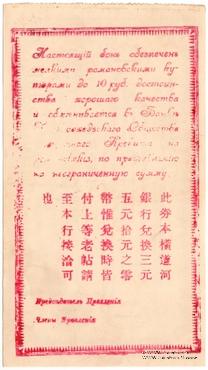 Настоящій бонъ обезпеченъ
мелкими романовскими ку-
порами до 10 руб. достоин-
ства хорошаго качества
и обмѣнивается в
Общества
Кредита на
по предъявленію
на неограниченную сумму.
此券本橫道河
銀行兌換三元
五元拾元之零
幣惟兌換時皆
付上等老帖請
至本行接洽可
也
Предсѣдатель Правленія
Члены Правленія